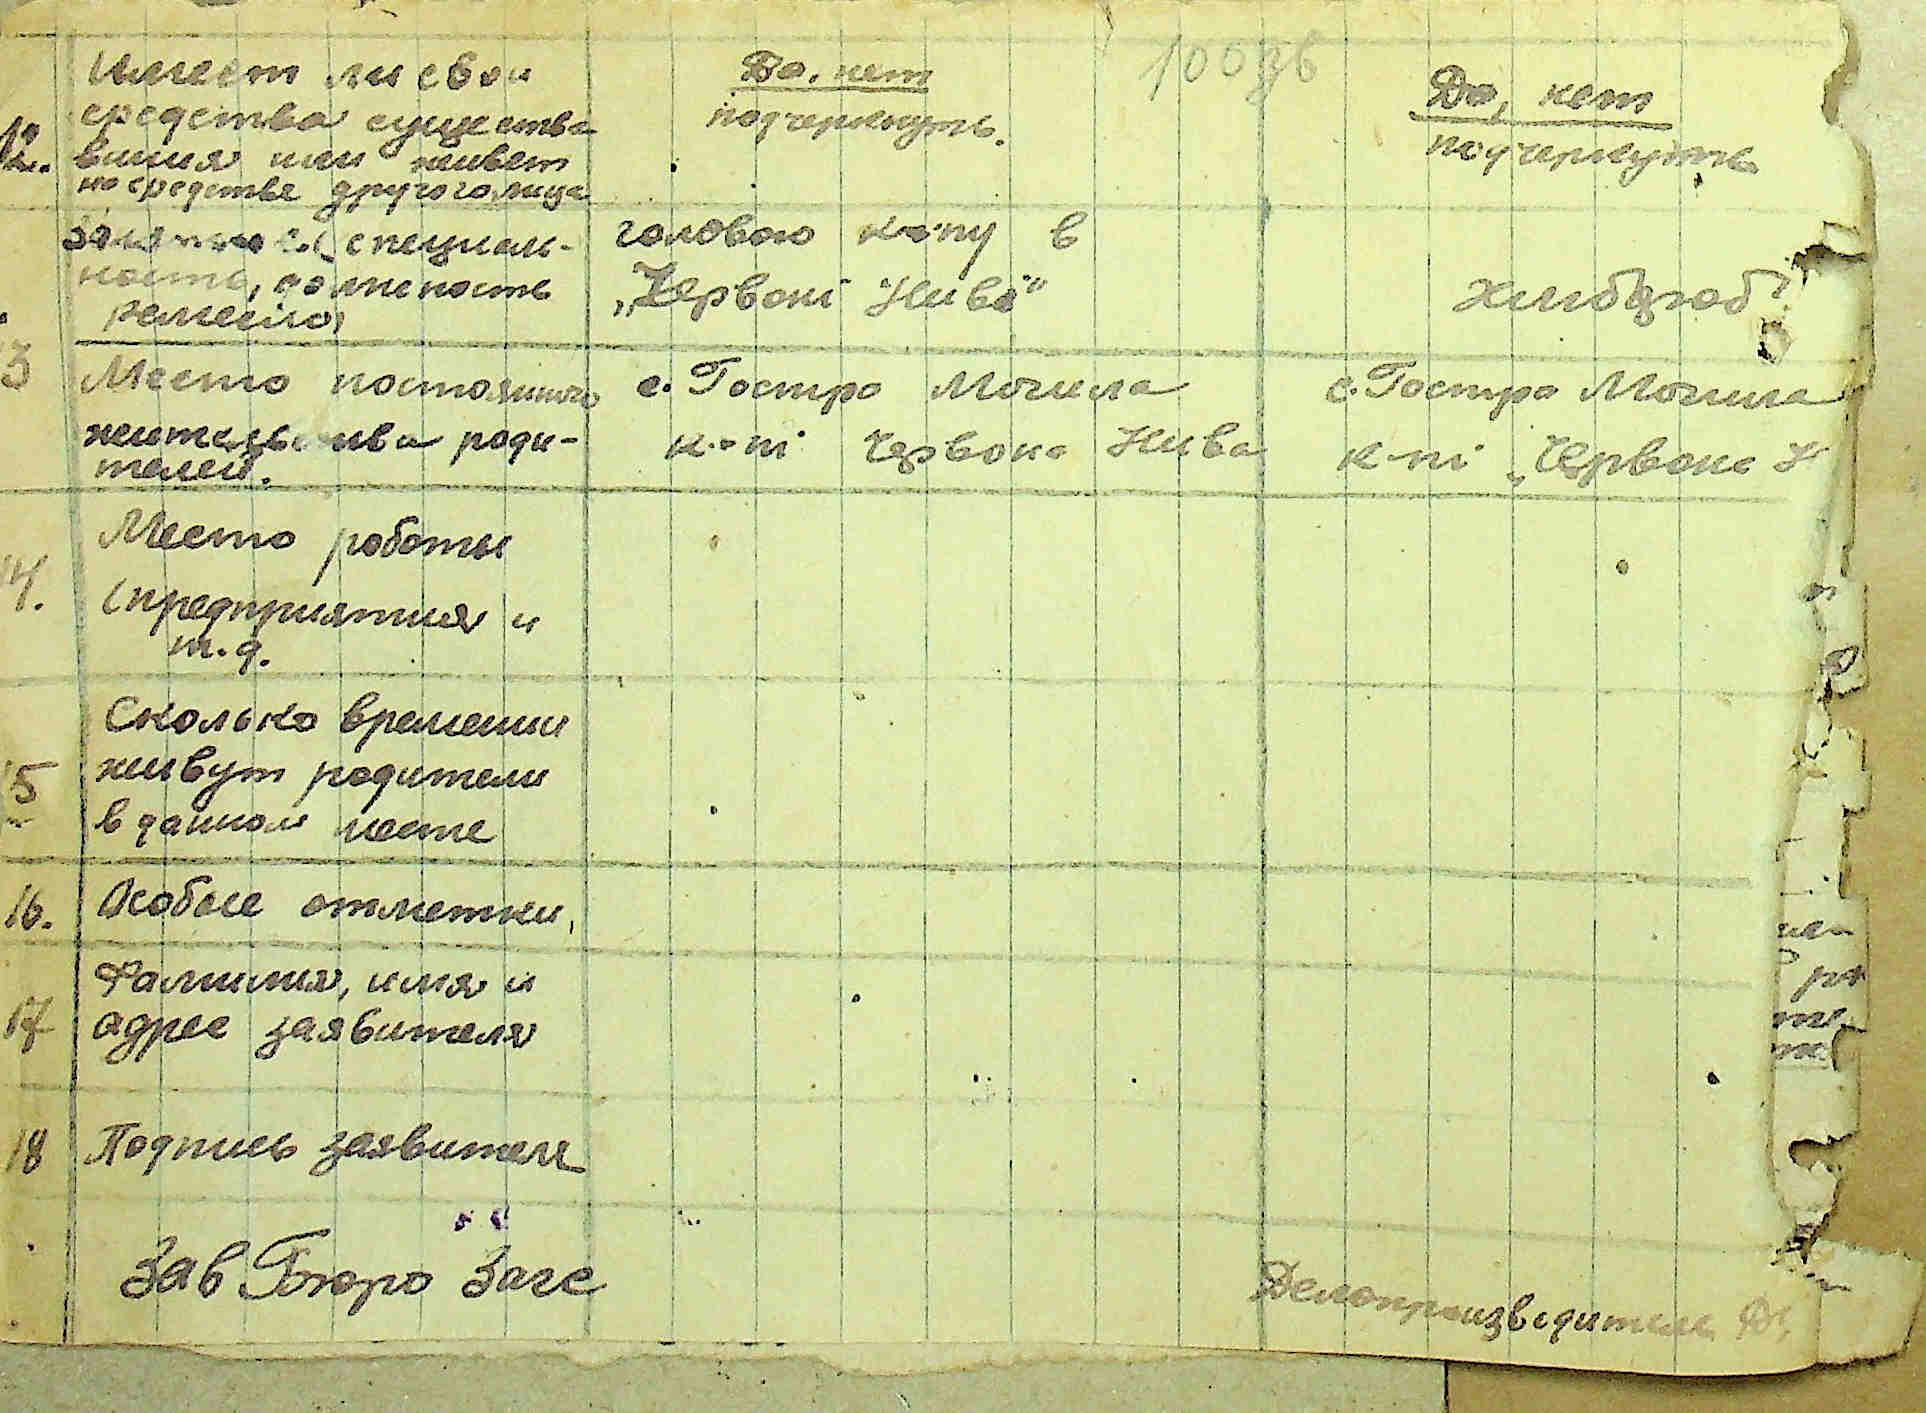 100зв
Имеет ли свои
средства существо
вания или живет
на средства другого лица
Да, нет
подчеркнуть.
Да, нет
подчеркнуть
занятие (специаль-
ность, должность
ремесло)
головою к-пу в
„Червоні Ниві"
хлібороб
3
Место постоянного
жительства роди-
телей.
с. Гостра Могила
к-пі Червона Нива
с. Гостра Могила
к-пі „Червона Н
14.
Место работы
(предприятия и
т.д.
15
Сколько времени
живут родители
в данном месте
16.
Особые отметки,
17
Фамилия, имя и
адрес заявителя
18
Подпись заявителя
Зав Бюро Загс
Делопроизводитель